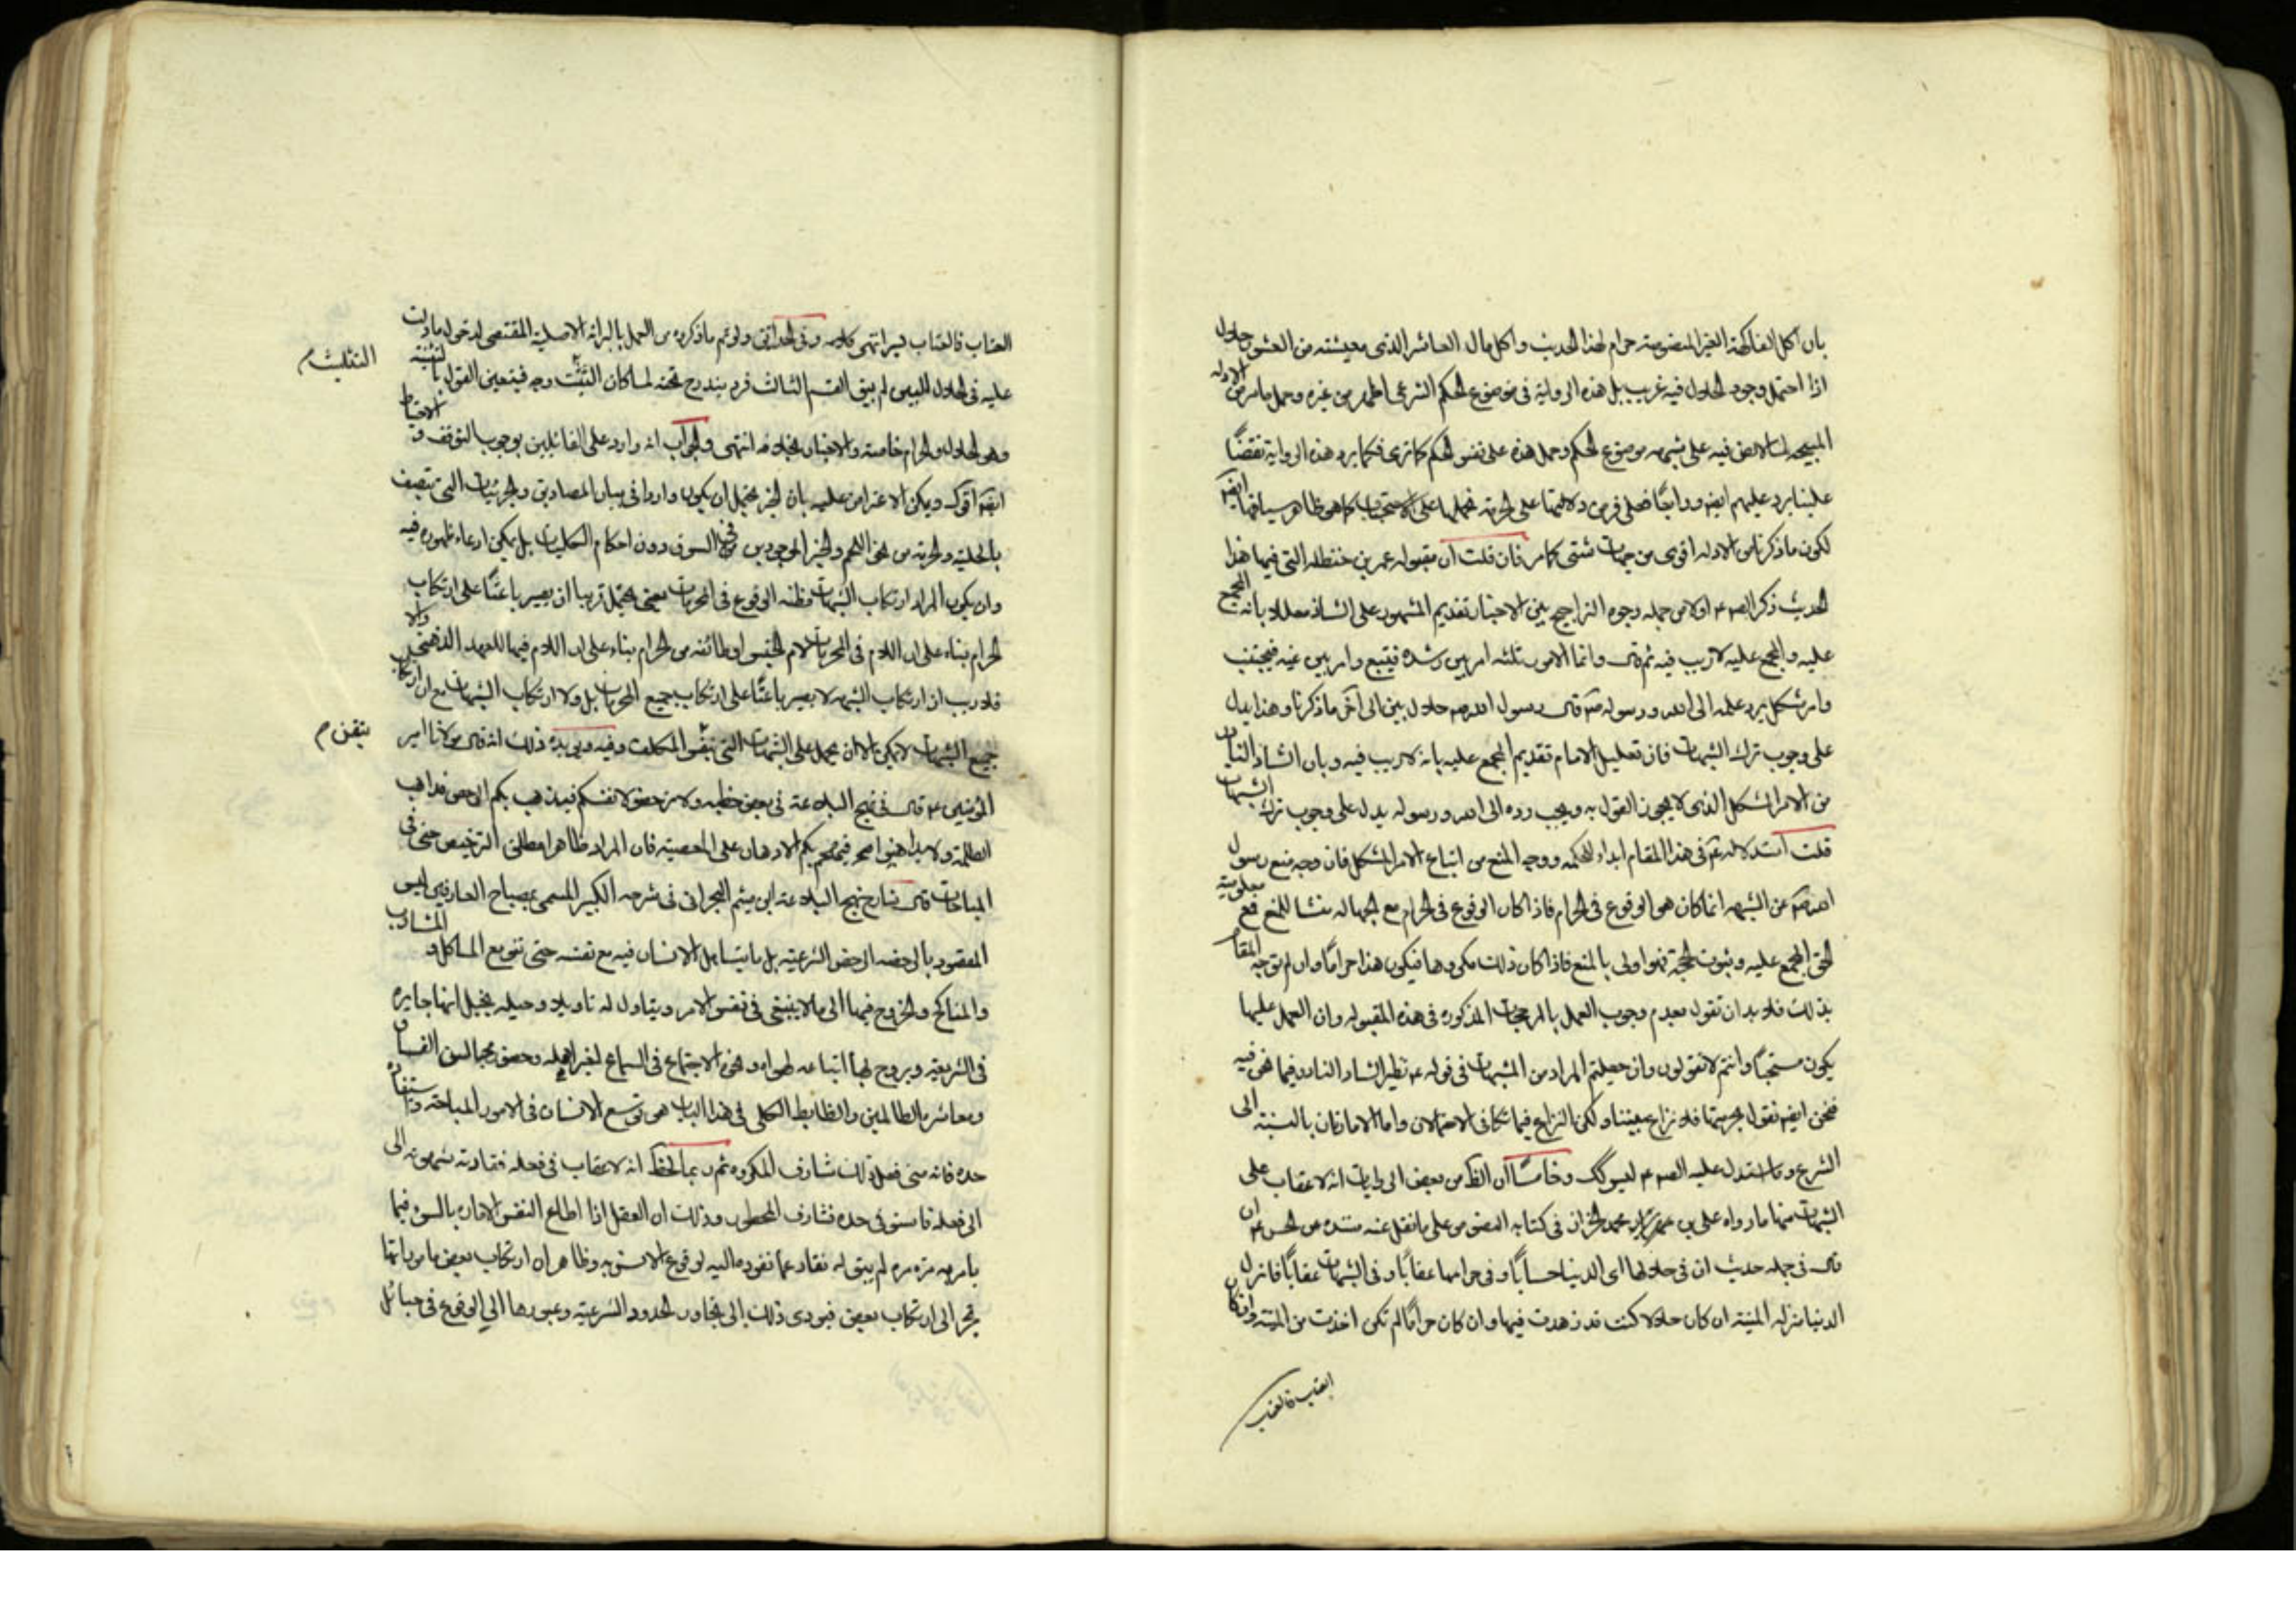 بان اكل الفاكهة الغير المغسولة حرام لهذا الحديث واكل مال العاشر الذي معيشته من العشور حلال
اذا احتمل وجود الحلال فيه غريب بل هذه الرواية في موضوع الحكم الشرعي اظهر من غيره وحمل مامر من الادلة
المبيحة لما لا نص فيه على شبهة موضوع الحكم وحمل هذه على نفس الحكم كما ترى فكما يرد هذه الرواية نقضاً
علينا يرد عليهم ايضه ورابعاً فعلى فرض دلالتها على الحرمة نحملها على الاستحباب كما هو ظاهر سياقها ايضه
لكون ما ذكرنا من الادلة اقوى من جهات شتى كما مر فان قلت ان مقبولة عمر بن حنظلة التي فيها هذا
الحديث ذكر الصم ع اولا من جملة وجوه التراجيح بين الاخبار تقديم المشهور على الشاذ معللا بانه المجمع
عليه والمجمع عليه لا ريب فيه ثم قال وانما الامور ثلثة امر بين رشده فيتبع وامر بين غيه فيجتنب
وامر مشكل يرد علمه الى الله ورسوله ص قال رسول الله ص حلال بين الى آخر ما ذكرنا وهذا يدل
على وجوب ترك الشبهات فان تعليل الامام تقديم المجمع عليه بانه لا ريب فيه وبان الشاذ النادر
من الامر المشكل الذي لا يجوز القول به ويجب رده الى الله ورسوله يدل على وجوب ترك الشبهات
قلت استدلاله ع في هذا المقام ابداء للحكمة ووجه المنع من اتباع الامر المشكل فان وجه منع رسول
الله ص عن الشبهة انما كان هو الوقوع في الحرام فاذا كان الوقوع في الحرام مع الجهالة منشا للمنع فمع معلومية
الحق المجمع عليه وثبوت الحجة فهو اولى بالمنع فاذا كان ذلك مكروها فيكون هذا حراماً وان لم توجه المقام
بذلك فلا بد ان تقول بعدم وجوب العمل بالمرجحات المذكورة في هذه المقبولة وان العمل عليها
يكون مستحباً وانتم لا تقولون وان جعلتم المراد من الشبهات في قوله ع نظير الشاذ النادر فيما نحن فيه
فنحن ايضه نقول بحرمتها فلا نزاع بيننا ولكن النزاع فيما تكافى الاحتمالان واما الامارتان بالنسبة الى
الشرع وما استدل عليه الصم ع ليس كك وخامساً ان الظ من بعض الروايات انه لا عقاب على
الشبهات منها ما رواه علي بن محمد الخزاز في كتابه النصوص على ما نقل عنه مسنده عن الحسن ع ان
قال في جملة حديث ان في حلالها اى الدنيا حساباً وفي حرامها عقاباً وفي الشبهات عقاباً فانزل
الدنيا منزلة الميتة ان كان حلالا كنت قد زهدت فيها وان كان حراماً لم تكن اخذت من الميتة وان كان
العتاب فالعتاب
العتاب فالعتاب يسير انتهى كلامه وفى الحدائق ولو تم ما ذكروه من العمل بالبرائة الاصلية المقتضى لدخول ما دلت
التثليث م
عليه في الحلال البين لم يبق القسم الثالث فرد يندرج تحته لما كان التثلث وجه فيتعين القول بالتثنية
وهو الحلال والحرام خاصة والاخبار بخلافه انتهى والجواب انه وارد على القائلين بوجوب التوقف و الاحتياط
ايضه اقول ويمكن الاعتراض عليه بان الخبر يحتمل ان يكون واردا في بيان المصاديق والجزئيات التي تتصف
بالحلية والحرمة من نحو اللحم والخبز الموجودين في السوق دون احكام الكليات بل يمكن ادعاء ظهوره فيه
وان يكون المراد ارتكاب الشبهات مظنة الوقوع في المحرمات يعني يحتمل قريبا ان يصير باعثاً على ارتكاب
الحرام بناء على ان اللام في المحرمات لام الجنس او طائفة من الحرام بناء على ان اللام فيها للعهد الذهني والا
فلا ريب ان ارتكاب الشبهة لا يصير باعثاً على ارتكاب جميع المحرمات بل ولا ارتكاب الشبهات مع ان ارتكاب
جميع الشبهات لا يمكن الا ان يحمل على الشبهات التي المكلف وفيه ويؤيده ذلك انه قال مولانا امير
المؤمنين ع قال في نهج البلاغة في بعض خطبه ولا ترخصوا لانفسكم فيذهب بكم الرخص مذاهب
الظلمة ولا تداهنوا فيهجم بكم الادهان على المعصية فان المراد ظاهرا مطلق الترخيص حتى في
المباحات قال شارح نهج البلاغة ابن ميثم البحراني في شرحه الكبير المسمى بمصباح العارفين ليس
المقصود بالرخصة الرخص الشرعية بل ما يتساهل الانسان فيه مع نفسه حتى تنوع المآكل و المشارب
والمناكح والخروج فيها الى ما لا ينبغي في نفس الامر ويتاول له تاويلا وحيلة يخيل انها جايزة
في الشريعة ويروج لها اتباعه لهواه وهذه الاجتماع في السماع لغير اهله وحضور مجالس الفساق
ومعاشرة الظالمين والظابط الكلى في هذا الباب هو توسع الانسان في الامور المباحة واستيفاء
حده فانه من فعل ذلك شارف المكروه ثم ربما لحظ انه لا عقاب في فعله فقادته شهوته الى
الى فعله فاستوفى حده فشارف المحظور وذلك ان العقل اذا اطاع النفس الامارة بالسوء فيما
يامر به مرة مرة لم يبق له نفار عما تقوده اليه لوقوع الانس به وظاهر ان ارتكاب بعض مامر باتها
تجر الى ارتكاب بعض فيودى ذلك الى تجاوز الحدود الشرعية وعبورها الى الوقوع في حبائل